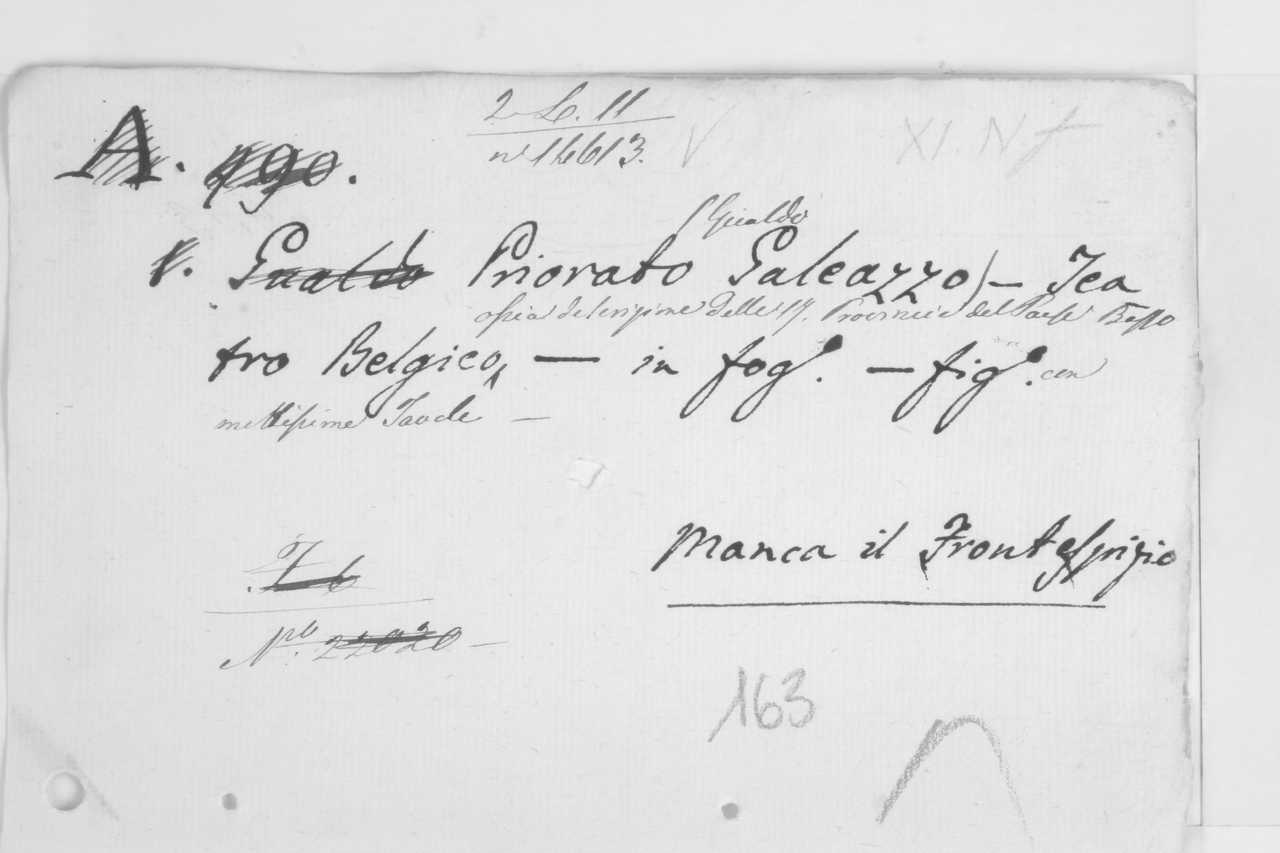 2 L. 11
n° 14613. V
XI. N f
A. 490.
(Gualdo
1. Gualdo Priorato Galeazzo) — Tea
osia descrizione delle 17. Provincie del Paese Basso
tro Belgico, — in fog°. — fig°. con
moltissime Tavole —
Manca il Frontespizio
T. b
N.ro 22020 —
163